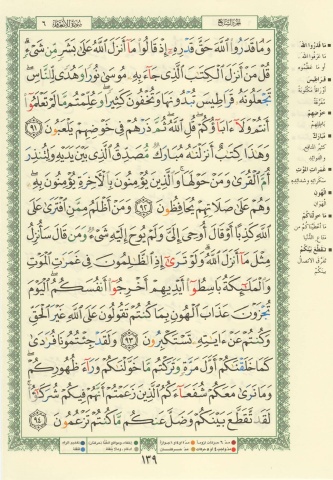 سورة الأنعام ٦
الجزء السابع
وَمَا قَدَرُوا۟ ٱللَّهَ حَقَّ قَدْرِهِۦٓ إِذْ قَالُوا۟ مَآ أَنزَلَ ٱللَّهُ عَلَىٰ بَشَرٍ مِّن شَىْءٍ
قُلْ مَنْ أَنزَلَ ٱلْكِتَـٰبَ ٱلَّذِى جَآءَ بِهِۦ مُوسَىٰ نُورًا وَهُدًى لِّلنَّاسِ
تَجْعَلُونَهُۥ قَرَاطِيسَ تُبْدُونَهَا وَتُخْفُونَ كَثِيرًا وَعُلِّمْتُم مَّا لَمْ تَعْلَمُوٓا۟
أَنتُمْ وَلَآ ءَابَآؤُكُمْ قُلِ ٱللَّهُ ثُمَّ ذَرْهُمْ فِى خَوْضِهِمْ يَلْعَبُونَ ٩١
وَهَـٰذَا كِتَـٰبٌ أَنزَلْنَـٰهُ مُبَارَكٌ مُّصَدِّقُ ٱلَّذِى بَيْنَ يَدَيْهِ وَلِتُنذِرَ
أُمَّ ٱلْقُرَىٰ وَمَنْ حَوْلَهَا وَٱلَّذِينَ يُؤْمِنُونَ بِٱلْـَٔاخِرَةِ يُؤْمِنُونَ بِهِۦ
وَهُمْ عَلَىٰ صَلَاتِهِمْ يُحَافِظُونَ ٩٢ وَمَنْ أَظْلَمُ مِمَّنِ ٱفْتَرَىٰ عَلَى
ٱللَّهِ كَذِبًا أَوْ قَالَ أُوحِىَ إِلَىَّ وَلَمْ يُوحَ إِلَيْهِ شَىْءٌ وَمَن قَالَ سَأُنزِلُ
مِثْلَ مَآ أَنزَلَ ٱللَّهُ وَلَوْ تَرَىٰٓ إِذِ ٱلظَّـٰلِمُونَ فِى غَمَرَٰتِ ٱلْمَوْتِ
وَٱلْمَلَـٰٓئِكَةُ بَاسِطُوٓا۟ أَيْدِيهِمْ أَخْرِجُوٓا۟ أَنفُسَكُمُ ٱلْيَوْمَ
تُجْزَوْنَ عَذَابَ ٱلْهُونِ بِمَا كُنتُمْ تَقُولُونَ عَلَى ٱللَّهِ غَيْرَ ٱلْحَقِّ
وَكُنتُمْ عَنْ ءَايَـٰتِهِۦ تَسْتَكْبِرُونَ ٩٣ وَلَقَدْ جِئْتُمُونَا فُرَٰدَىٰ
كَمَا خَلَقْنَـٰكُمْ أَوَّلَ مَرَّةٍ وَتَرَكْتُم مَّا خَوَّلْنَـٰكُمْ وَرَآءَ ظُهُورِكُمْ
وَمَا نَرَىٰ مَعَكُمْ شُفَعَآءَكُمُ ٱلَّذِينَ زَعَمْتُمْ أَنَّهُمْ فِيكُمْ شُرَكَـٰٓؤُا۟
لَقَد تَّقَطَّعَ بَيْنَكُمْ وَضَلَّ عَنكُم مَّا كُنتُمْ تَزْعُمُونَ ٩٤
ما قدروا الله
ما عرفوا الله
قراطيس
خوضهم
مبارك
غمرات الموت
سكراته وشدائده
الهون
الهوان
ما خولناكم
تقطع بينكم
تفرق الاتصال
بينكم
١٣٩